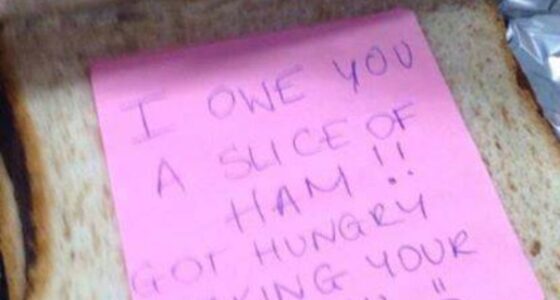 I OWE YOU
A SLICE OF
HAM!!
GOT HUNGRY
YOUR